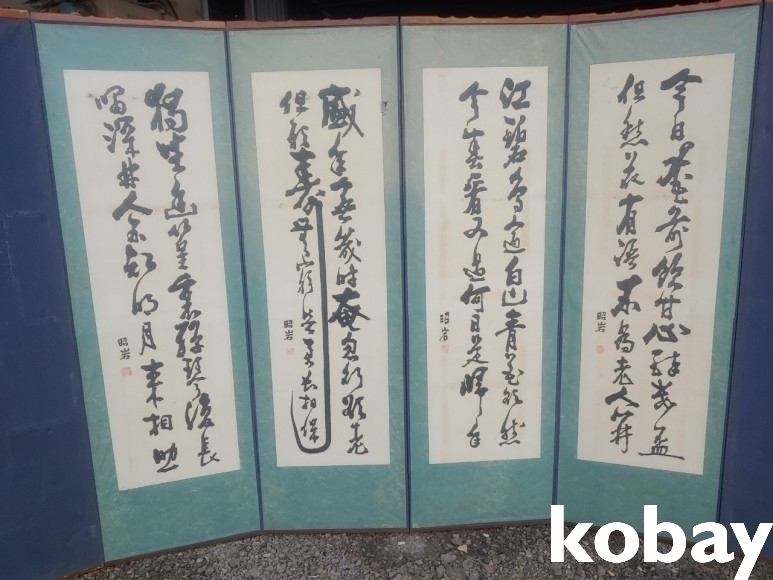 今日花前飮甘心醉數盃
但愁花有語不爲老人開
昭岩
江碧鳥逾白山靑花欲然
今春看又過何日是歸年
昭岩
盛年無幾時奄忽行欲老
但願壽無窮與君長相保
昭岩
獨坐幽篁裏彈琴復長
嘯深林人不知明月來相照
昭岩
kobay